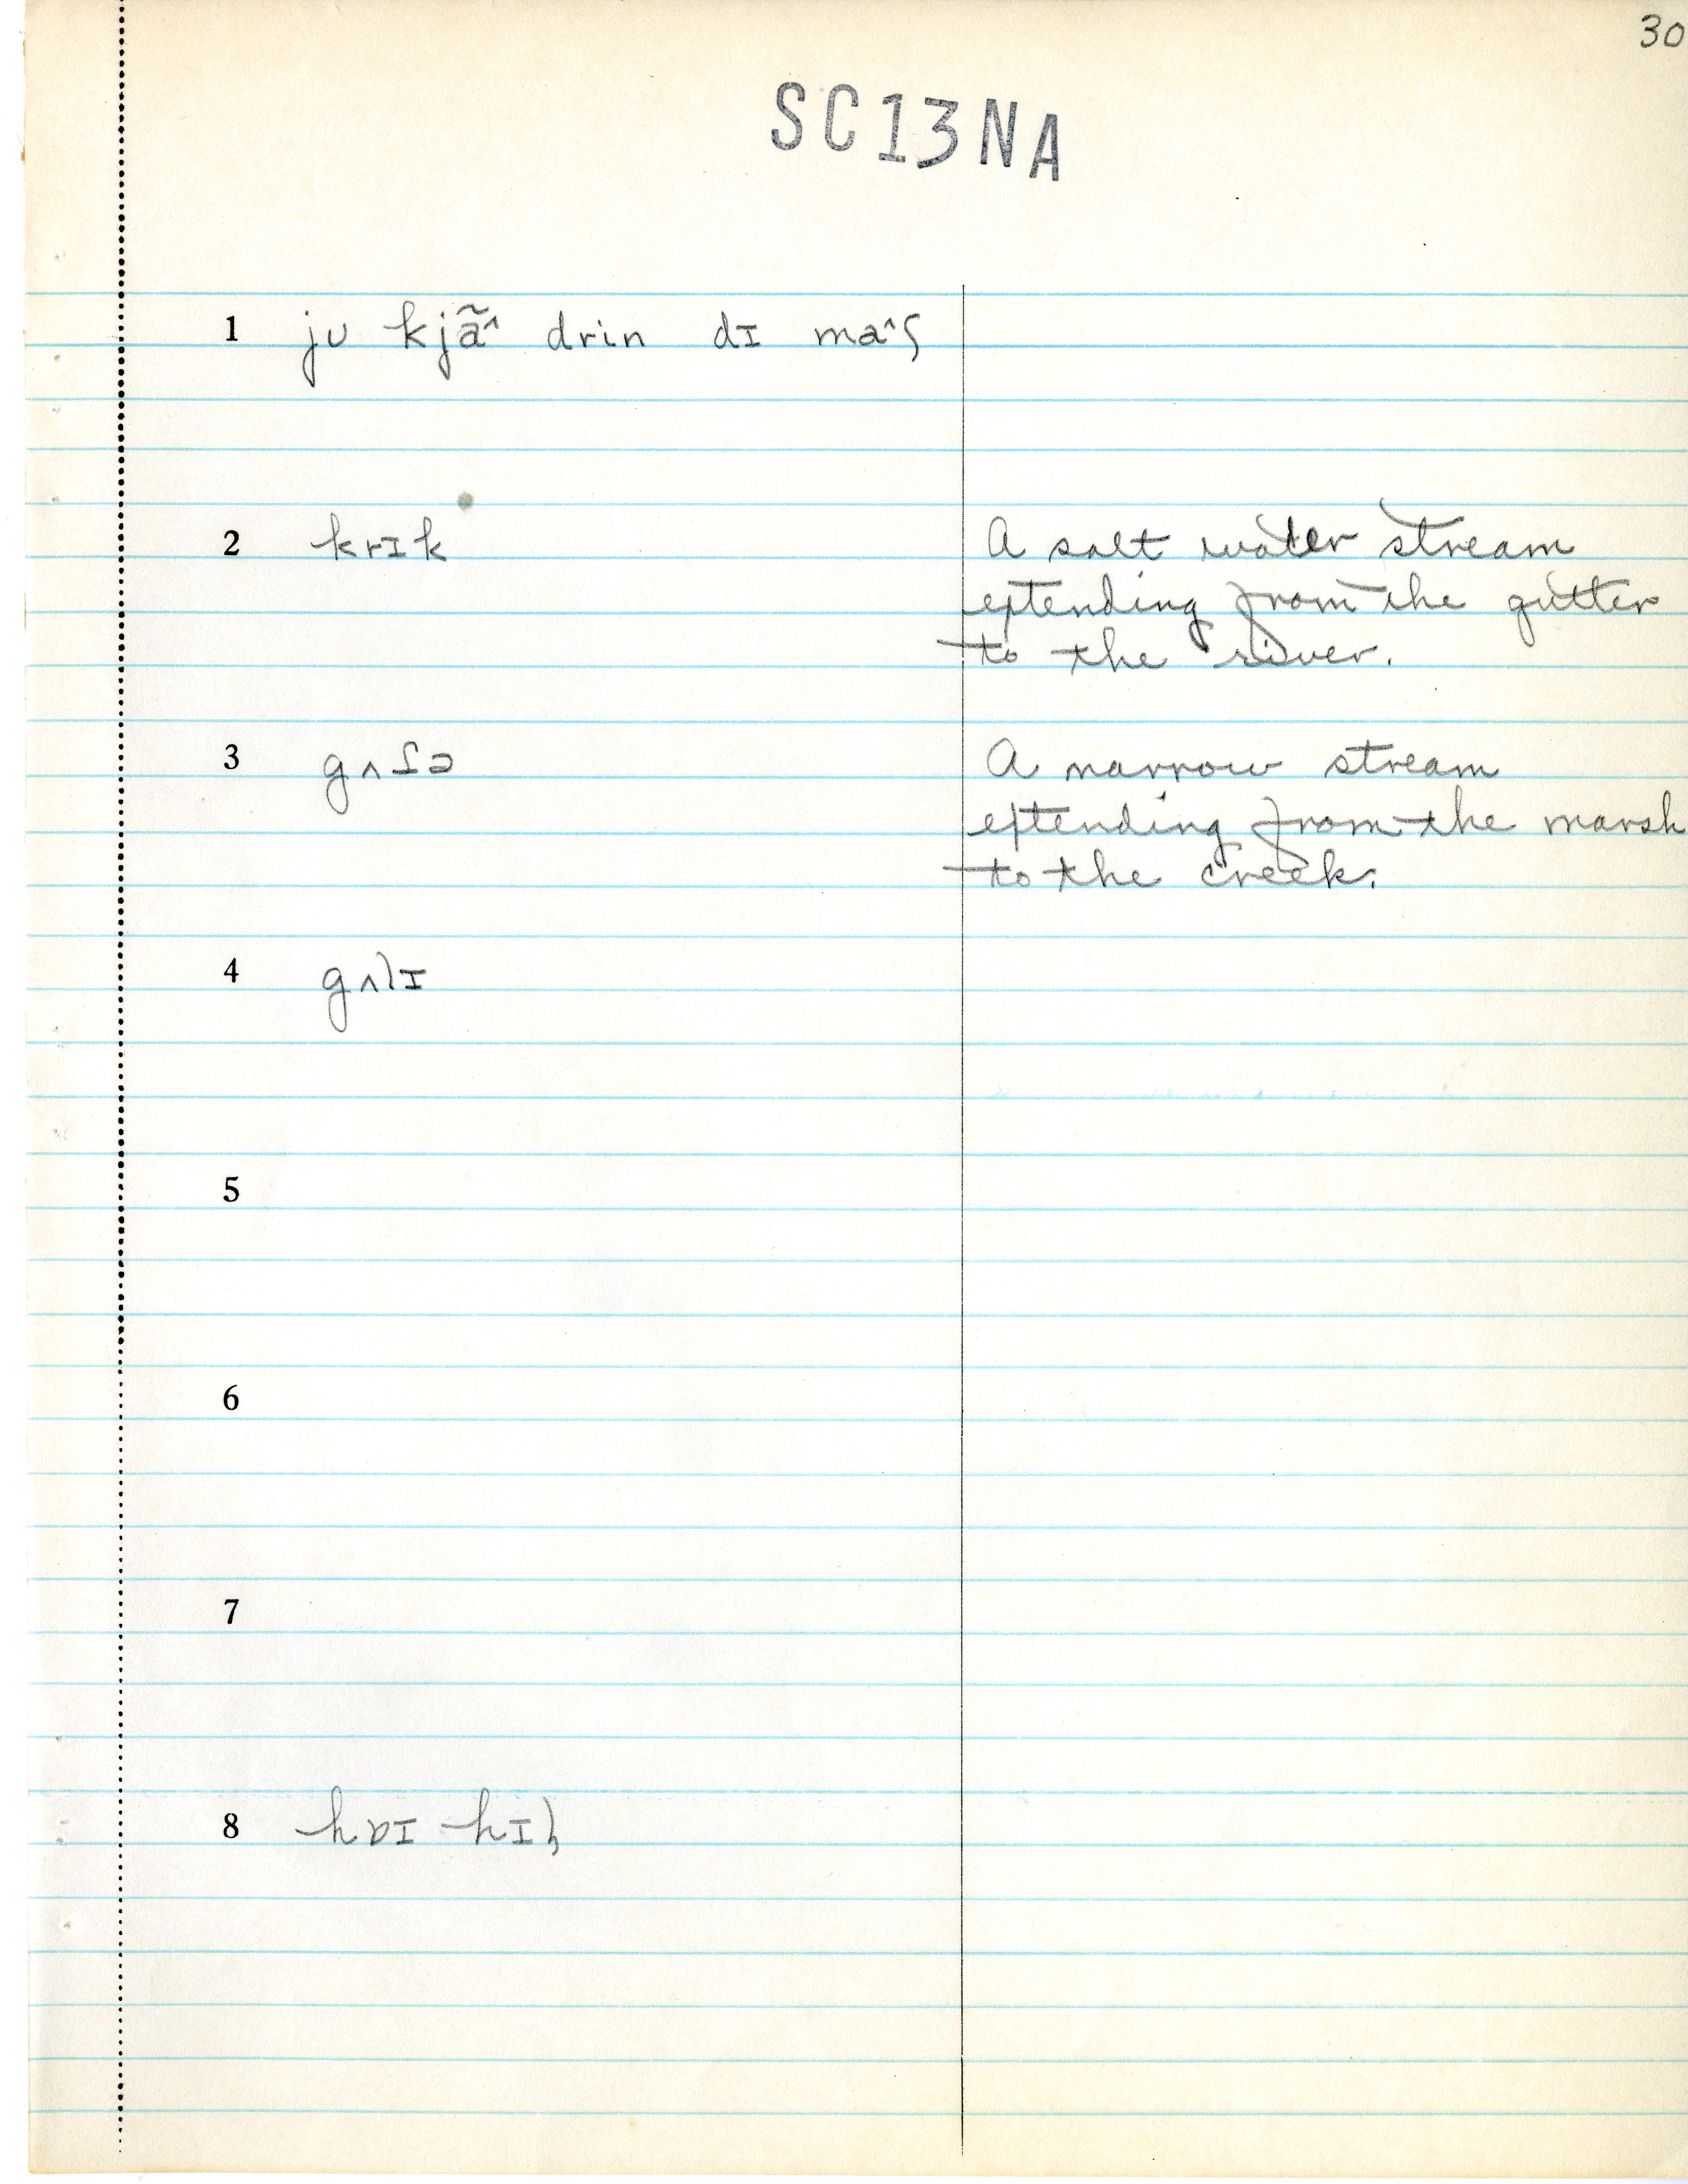 30
SC13NA
1 jʊ kjã^ drin dɪ ma^ʃ
2 krɪk A salt water stream
extending from the gutter
to the river.
3 gʌɾə A narrow stream
extending from the marsh
to the creek.
4 gʌlɪ
5
6
7
8 hɒɪ hɪl̡